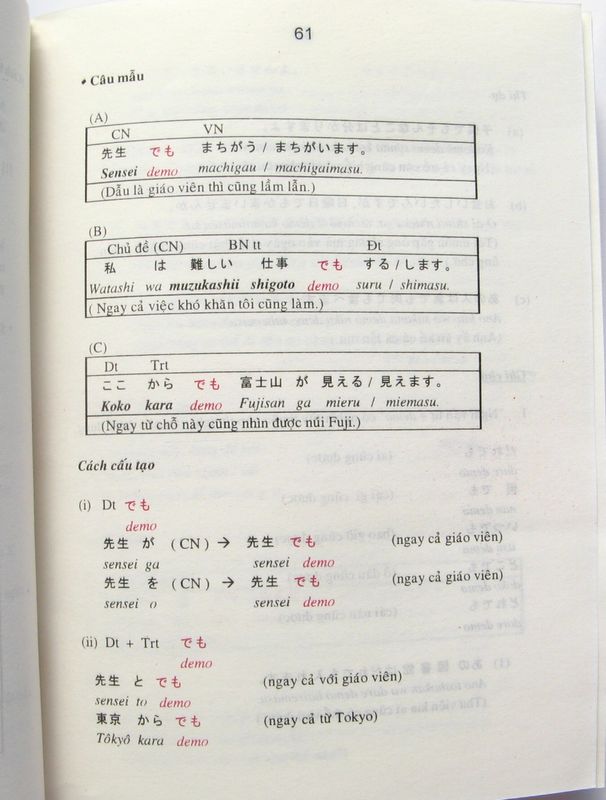 61
• Câu mẫu
(A)
CN VN
先生 でも まちがう / まちがいます。
Sensei demo machigau / machigaimasu.
(Dẫu là giáo viên thì cũng lầm lẫn.)
(B)
Chủ đề (CN) BN tt Đt
私 は 難しい 仕事 でも する / します。
Watashi wa muzukashii shigoto demo suru / shimasu.
( Ngay cả việc khó khăn tôi cũng làm.)
(C)
Dt Trt
ここ から でも 富士山 が 見える / 見えます。
Koko kara demo Fujisan ga mieru / miemasu.
(Ngay từ chỗ này cũng nhìn được núi Fuji.)
Cách cấu tạo
(i) Dt でも
demo
先生 が (CN) → 先生 でも (ngay cả giáo viên)
sensei ga sensei demo
先生 を (CN) → 先生 でも (ngay cả giáo viên)
sensei o sensei demo
(ii) Dt + Trt でも
demo
先生 と でも (ngay cả với giáo viên)
sensei to demo
東京 から でも (ngay cả từ Tokyo)
Tôkyô kara demo